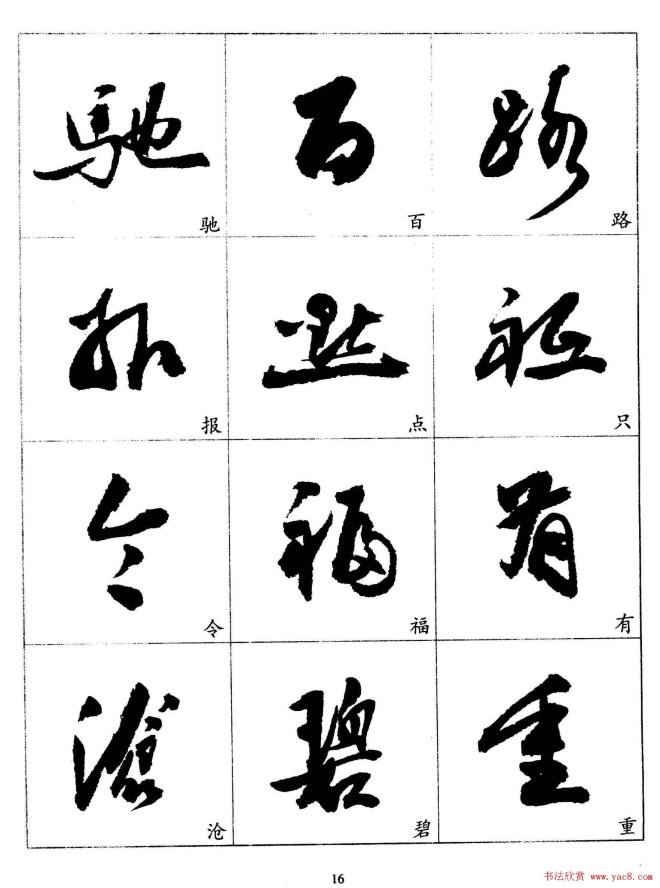 驰 百 路
驰 百 路
报 點 祇
报 点 只
令 福 有
令 福 有
滄 碧 重
沧 碧 重
16
书法欣赏 www.yac8.com